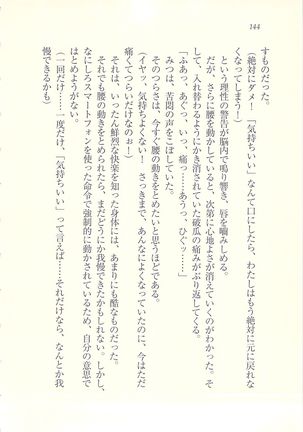 144
すものだった。
(絶対にダメ！　「気持ちいい」なんて口にしたら、わたしはもう絶対に元に戻れな
くなってしまう！)
という理性の警告が脳内で鳴り響き、唇を噛みしめる。
だが、さらに腰を動かしていると、次第に心地よさが消えていくのがわかった。そ
して、入れ替わるようにかき消されていた破瓜の痛みがぶり返してくる。
「ふあっ、あっつ、いっ、痛っ……あうっ、ひぐッ……」
みつは、苦悶の声をこぼしていた。
そのつらさは、今すぐ腰の動きをとめたいと思うほどである。
(イヤッ、気持ちよくない！　さっきまで、あんなによくなっていたのに、今はただ
痛くてつらいだけなのぉ！)
それは、いったん鮮烈な快楽を知った身体には、あまりにも酷なものだった。
それでも腰の動きをとめられたら、まだどうにか我慢できたかもしれない。しかし、
なにしろスマートフォンを使った命令で強制的に動かされているため、自分の意思で
はとめようがない。
(一回だけ……一度だけ、「気持ちいい」って言えば……それだけなら、なんとか我
慢できるかも)